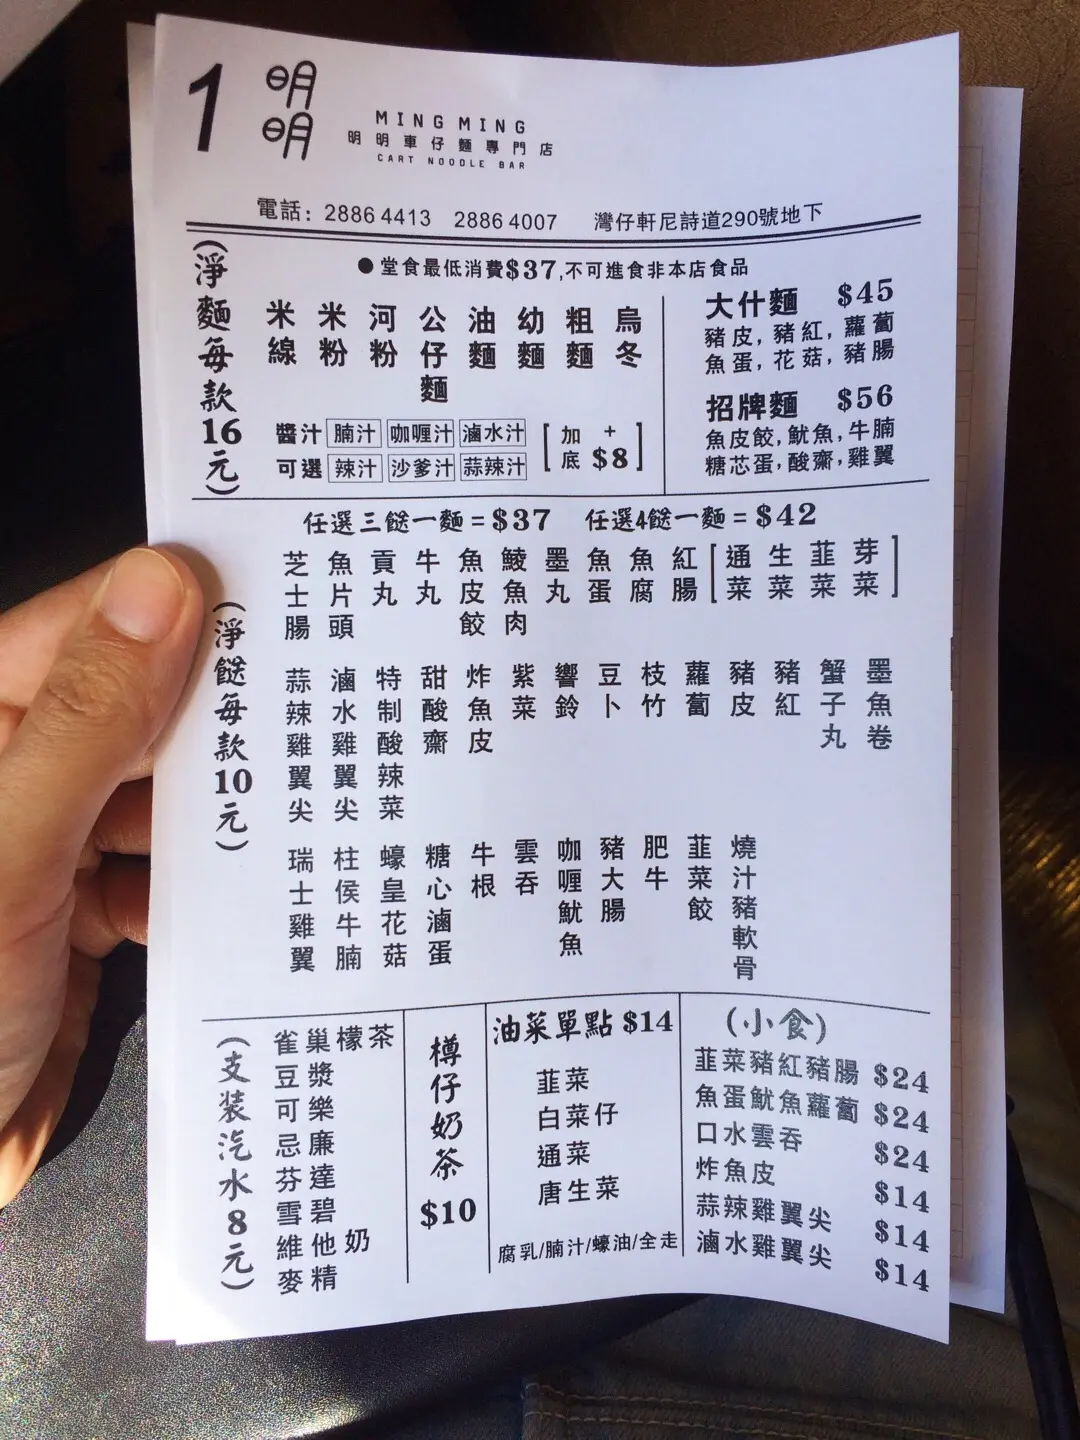 1 明明
MING MING
明明車仔麵專門店
CART NOODLE BAR
電話：2886 4413 2886 4007 灣仔軒尼詩道290號地下
（淨麵每款16元）
●堂食最低消費$37,不可進食非本店食品
米線
米粉
河粉
公仔麵
油麵
幼麵
粗麵
烏冬
醬汁可選
腩汁 咖喱汁 滷水汁
辣汁 沙爹汁 蒜辣汁
[加底 +$8]
大什麵 $45
豬皮,豬紅,蘿蔔
魚蛋,花菇,豬腸
招牌麵 $56
魚皮餃,魷魚,牛腩
糖芯蛋,酸齋,雞翼
任選三餸一麵=$37 任選4餸一麵=$42
（淨餸每款10元）
芝士腸
魚片頭
貢丸
牛丸
魚皮餃
鯪魚肉
墨丸
魚蛋
魚腐
紅腸
[通菜
生菜
韮菜
芽菜]
蒜辣雞翼尖
滷水雞翼尖
特制酸辣菜
甜酸齋
炸魚皮
紫菜
響鈴
豆卜
枝竹
蘿蔔
豬皮
豬紅
蟹子丸
墨魚卷
瑞士雞翼
柱侯牛腩
蠔皇花菇
糖心滷蛋
牛根
雲吞
咖喱魷魚
豬大腸
肥牛
韮菜餃
燒汁豬軟骨
（支裝汽水8元）
雀巢檬茶
豆漿
可樂
忌廉
芬達
雪碧
維他奶
麥精
樽仔奶茶
$10
油菜單點 $14
韮菜
白菜仔
通菜
唐生菜
腐乳/腩汁/蠔油/全走
(小食)
韮菜豬紅豬腸 $24
魚蛋魷魚蘿蔔 $24
口水雲吞 $24
炸魚皮 $14
蒜辣雞翼尖 $14
滷水雞翼尖 $14